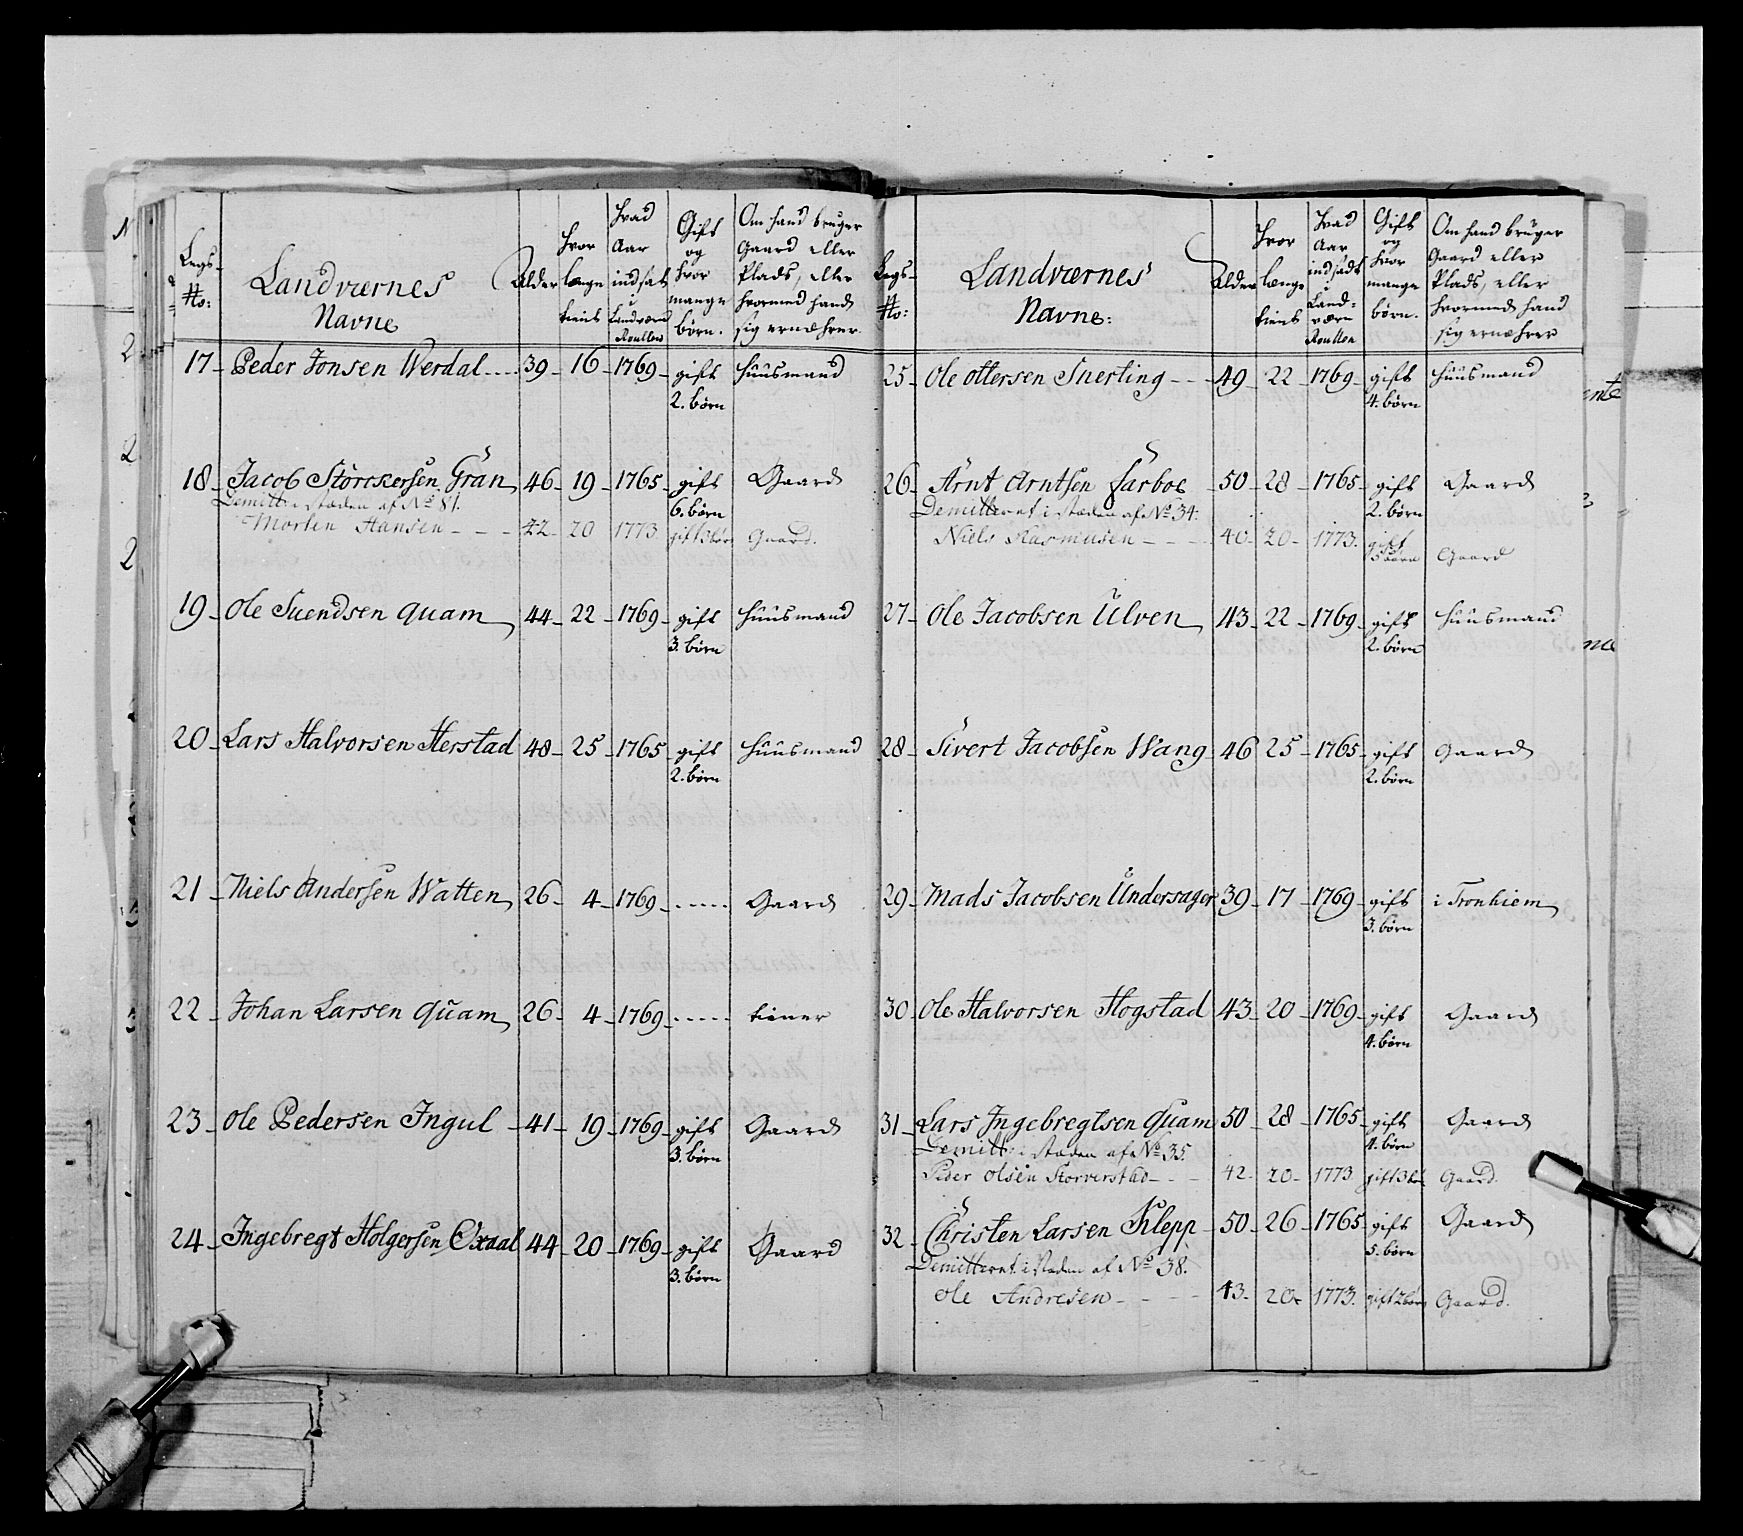 Legs- No: Landværnes Navne Alder hvor længe tient hvad Aar indsat i Landværn Roullen Gift og hvor mange børn. Om hand bruger Gaard eller Plads, eller hvormed hand sig ernæhrer
17 - Peder Jonsen Werdal .... 39 - 16 - 1769 - gift huusmand
2. børn
18 - Jacob Storckersen Gran 46 - 19 - 1765 - gift Gaard
6. børn
Demitt: i stæden af No 81.
Morten Hansen - - - 42 - 20 1773. gift 3 børn Gaard.
19 - Ole Suendsen quam 44 - 22 - 1769 - gift huusmand
3. børn
20 - Lars Halvorsen Herstad 48 - 25 - 1765 - gift huusmand
2. børn
21 - Niels Andersen Watten 26 - 4 - 1769 - ..... Gaard
22 - Johan Larsen quam 26 - 4 - 1769 - ..... tiener
23 - Ole Pedersen Ingul - 41 - 19 - 1769 - gift Gaard
3. børn
24 - Ingebregt Holgersen Oxaal 44 - 20 - 1769 - gift Gaard
3. børn
Legs- No: Landværnes Navne: Alder hvor længe tient hvad Aar indsadt i Land-værn Roullen Gift og hvor mange børn. Om hand bruger Gaard eller Plads, eller hvormed hand sig ernæhrer
25 - Ole Ottersen Snerting - - 49 - 22 - 1769 - gift huusmand
4. børn
26 - Arnt Arntsen Farboe - 50 - 28 - 1765 - gift Gaard
2. børn
Demitteret i stæden af No 34.
Niels Rasmusen - - - 40 - 20 - 1773. gift Gaard
børn
27 - Ole Jacobsen Ulven 43 - 22 - 1769 - gift huusmand
2. børn
28 - Sivert Jacobsen Wang - 46 25 - 1765 - gift Gaard
2. børn
29 - Mads Jacobsen Undersager 39 - 17 - 1769 - gift i Tronhiem
3. børn
30 - Ole Halvorsen Hogstad 43 - 20 - 1769 - gift Gaard
4. børn
31 - Lars Ingebregtsen Quam 50 - 28 - 1765 - gift Gaard
4. børn
Demitt: i stæden af No 35.
Peder Olsen Storverstad - - - 42 - 20 - 1773 gift 3 Gaard.
32 - Christen Larsen Klepp - 50 - 26 - 1765 - gift Gaard
5. børn
Demitteret i stæden af No 38.
Ole Andresen - - - - 43 - 20 - 1773. gift 2 børn Gaard.